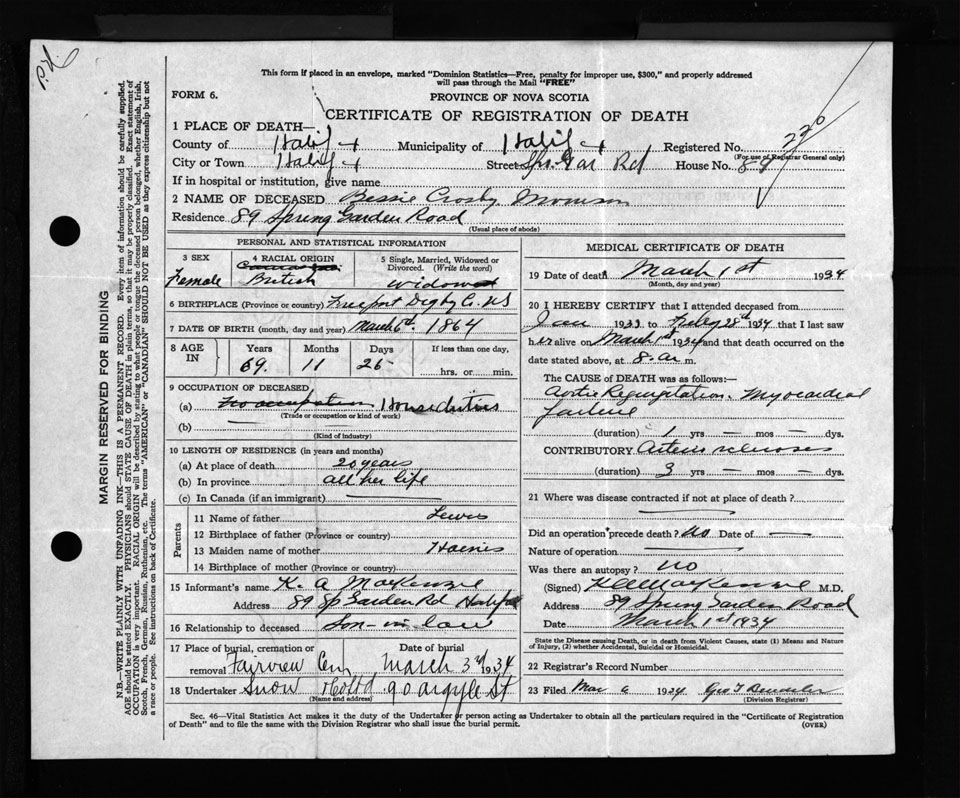 P.H.
This form if placed in an envelope, marked "Dominion Statistics—Free, penalty for improper use, $300," and properly addressed
will pass through the Mail "FREE"
FORM 6.
PROVINCE OF NOVA SCOTIA
CERTIFICATE OF REGISTRATION OF DEATH
1 PLACE OF DEATH—
County of Halifx Municipality of Halifx Registered No. 220
(For use of Registrar General only)
City or Town Halifx Street Spr. Gar Rd House No. 89
If in hospital or institution, give name
2 NAME OF DECEASED Bessie Crosby Morrison
Residence 89 Spring Garden Road
(Usual place of abode)
PERSONAL AND STATISTICAL INFORMATION
3 SEX Female
4 RACIAL ORIGIN Canadian British
5 Single, Married, Widowed or Divorced. (Write the word) Widowed
6 BIRTHPLACE (Province or country) Freeport Digby Co. NS
7 DATE OF BIRTH (month, day and year) March 6th. 1864
8 AGE IN Years 69. Months 11 Days 25 If less than one day, hrs. or min.
9 OCCUPATION OF DECEASED
(a) No occupation House duties
(Trade or occupation or kind of work)
(b) —
(Kind of industry)
10 LENGTH OF RESIDENCE (in years and months)
(a) At place of death 20 years
(b) In province all her life
(c) In Canada (if an immigrant) —
Parents
11 Name of father Lewis
12 Birthplace of father (Province or country)
13 Maiden name of mother Haines
14 Birthplace of mother (Province or country)
15 Informant's name K. A MacKenzie
Address 89 Sp Garden Rd Halifx
16 Relationship to deceased Son-in law
17 Place of burial, cremation or removal Fairview Cem Date of burial March 3rd 1934
18 Undertaker Snow & Co Ltd 90 Argyle St
(Name and address)
MEDICAL CERTIFICATE OF DEATH
19 Date of death March 1st 1934
(Month, day and year)
20 I HEREBY CERTIFY that I attended deceased from
Jan 1933 to Feby 28th 1934 that I last saw
her alive on March 1st 1934 and that death occurred on the
date stated above, at 8. a. m.
The CAUSE OF DEATH was as follows:—
Aortic Regurgitation. Myocardial
failure
(duration) 1 yrs — mos — dys.
CONTRIBUTORY Arterio sclerosis
(duration) 3 yrs — mos — dys.
21 Where was disease contracted if not at place of death? —
Did an operation precede death? no Date of —
Nature of operation —
Was there an autopsy? no
(Signed) K A MacKenzie M.D.
Address 89 Spring Garden Road
Date March 1st 1934
State the Disease causing Death, or in death from Violent Causes, state (1) Means and Nature
of Injury, (2) whether Accidental, Suicidal or Homicidal.
22 Registrar's Record Number
23 Filed Mar 6 1934 Geo T
(Division Registrar)
Sec. 46—Vital Statistics Act makes it the duty of the Undertaker or person acting as Undertaker to obtain all the particulars required in the "Certificate of Registration
of Death" and to file the same with the Division Registrar who shall issue the burial permit.
(OVER)
MARGIN RESERVED FOR BINDING
N.B.—WRITE PLAINLY WITH UNFADING INK—THIS IS A PERMANENT RECORD. Every item of information should be carefully supplied.
AGE should be stated EXACTLY. PHYSICIANS should STATE CAUSE OF DEATH in plain terms, so that it may be properly classified. Exact statement of
OCCUPATION is very important. RACIAL ORIGIN will be described by stating to what people or tongue the deceased person belonged, whether English, Irish,
Scotch, French, German, Russian, Ruthenian, etc. The terms "AMERICAN" or "CANADIAN" SHOULD NOT BE USED as they express citizenship but not
a race or people. See instructions on back of Certificate.